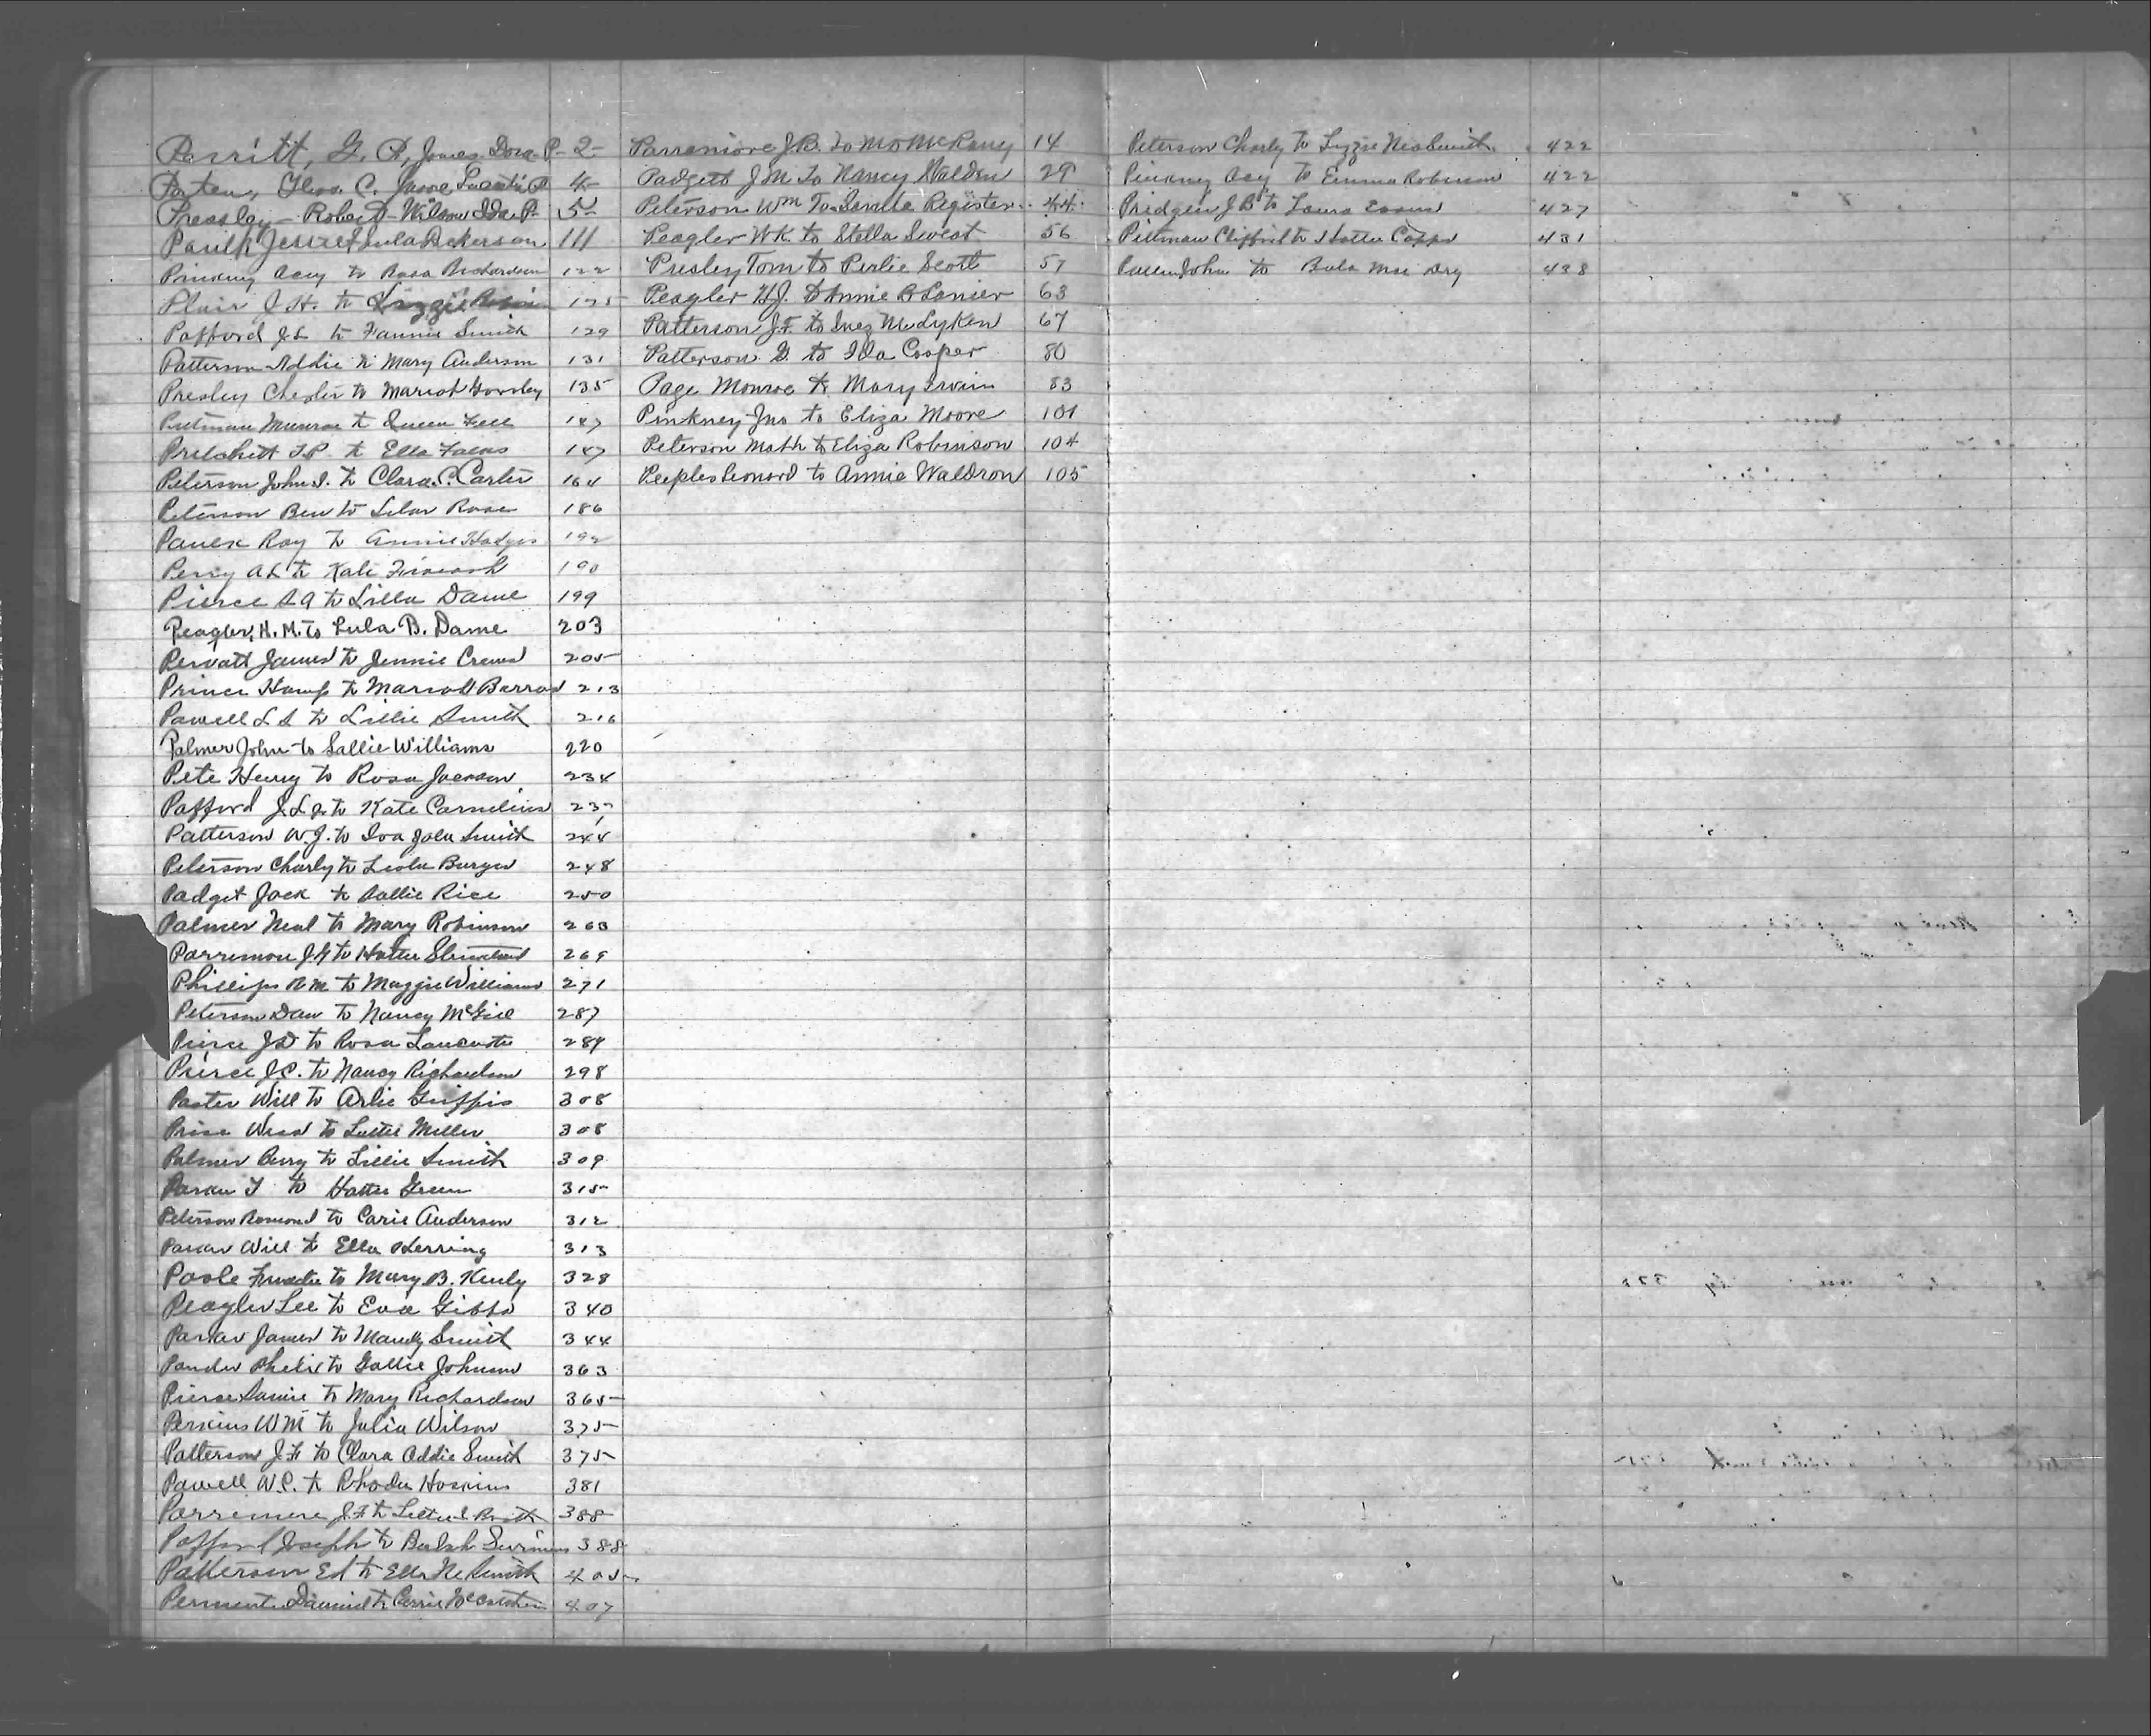 Perritt, G. P, Jones Dora P- 2-
Paten, Thos. C. 4-
Pressley - Robert - Wilson Ida P- 5-
Paulk Jesse & Lula Dickerson 111
Pinkney Acey to Rosa Richardson 122
Plair J. H. to Lizzie 125
Pafford J L to Fannie Smith 129
Patterson Addie to Mary Anderson 131
Presley Chester to Mariah 135
Pittman Munroe to Queen 147
Pritchett T. P. to Ella 147
Peterson John I. to Clara C. Carter 164
Peterson Ben to Rose 186
Roy to Annie Hodges
Perry A L to Kate 190
Pierce S A to Lilla Dame 199
Peagler, H. M. to Lula B. Dame 203
Pervatt James to Jennie Crews 205
Prince Hamp to 213
Powell L S to Lillie Smith 216
Palmer John to Sallie Williams 220
Pete Henry to Rosa Jackson 234
Pafford J. L. Jr to Kate Cornelius
Patterson W. J. to Iva Jola Smith 244
Peterson Charly to Leola Burges 248
Padget Jack to Sallie Rice 250
Palmer Neal to Mary Robinson 263
Parremore to Hattie Strickland 269
Phillips R M to Maggie Williams 271
Peterson Dan to Nancy McGill 287
Pierce J D to Rosa Lancaster 289
Pierce J. C. to Nancy Richardson 298
Will to Arlie Griffis 308
to Miller 308
Palmer Perry to Lillie Smith 309
Parker T to Hattie Green 315
Peterson to Carie Anderson 312
Parker Will to Ella Herring 313
Poole to Mary B. 328
Peagler Lee to Eva Gibbs 340
Parker James to Mandy Smith 344
to Sallie Johnson 363
Pierce to Mary Richardson 365
Perkins W M to Julia Wilson 375
Patterson J. H to Clara Addie Smith 375
Powell W. C. to Rhoda Hoskins 381
Parremore J F to 388
Pafford Joseph to Beulah 388
Patterson Ed to Ella NeSmith 405
to Carrie 407
Parramore J. B. To 14
Padgett J M To Nancy Walden 29
Peterson Wm To Register 44
Peagler W K. to Stella Sweat 56
Presley Tom to Perlie Scott 57
Peagler H J. to Annie B Lanier 63
Patterson J. F. to Inez 67
Patterson G. to Ida Cooper 80
Page Monroe to Mary Irvin 83
Pinkney Jno to Eliza Moore 101
Peterson Math to Eliza Robinson 104
Peeples Leonard to Annie Waldron 105
Peterson Charly to Lizzie NeSmith 422
Pinkney Acy to Emma Robinson 422
Pridgen J B to Laura Evans 427
Pittman Clifford to Hattie Capps 431
John to Bula Mae 438